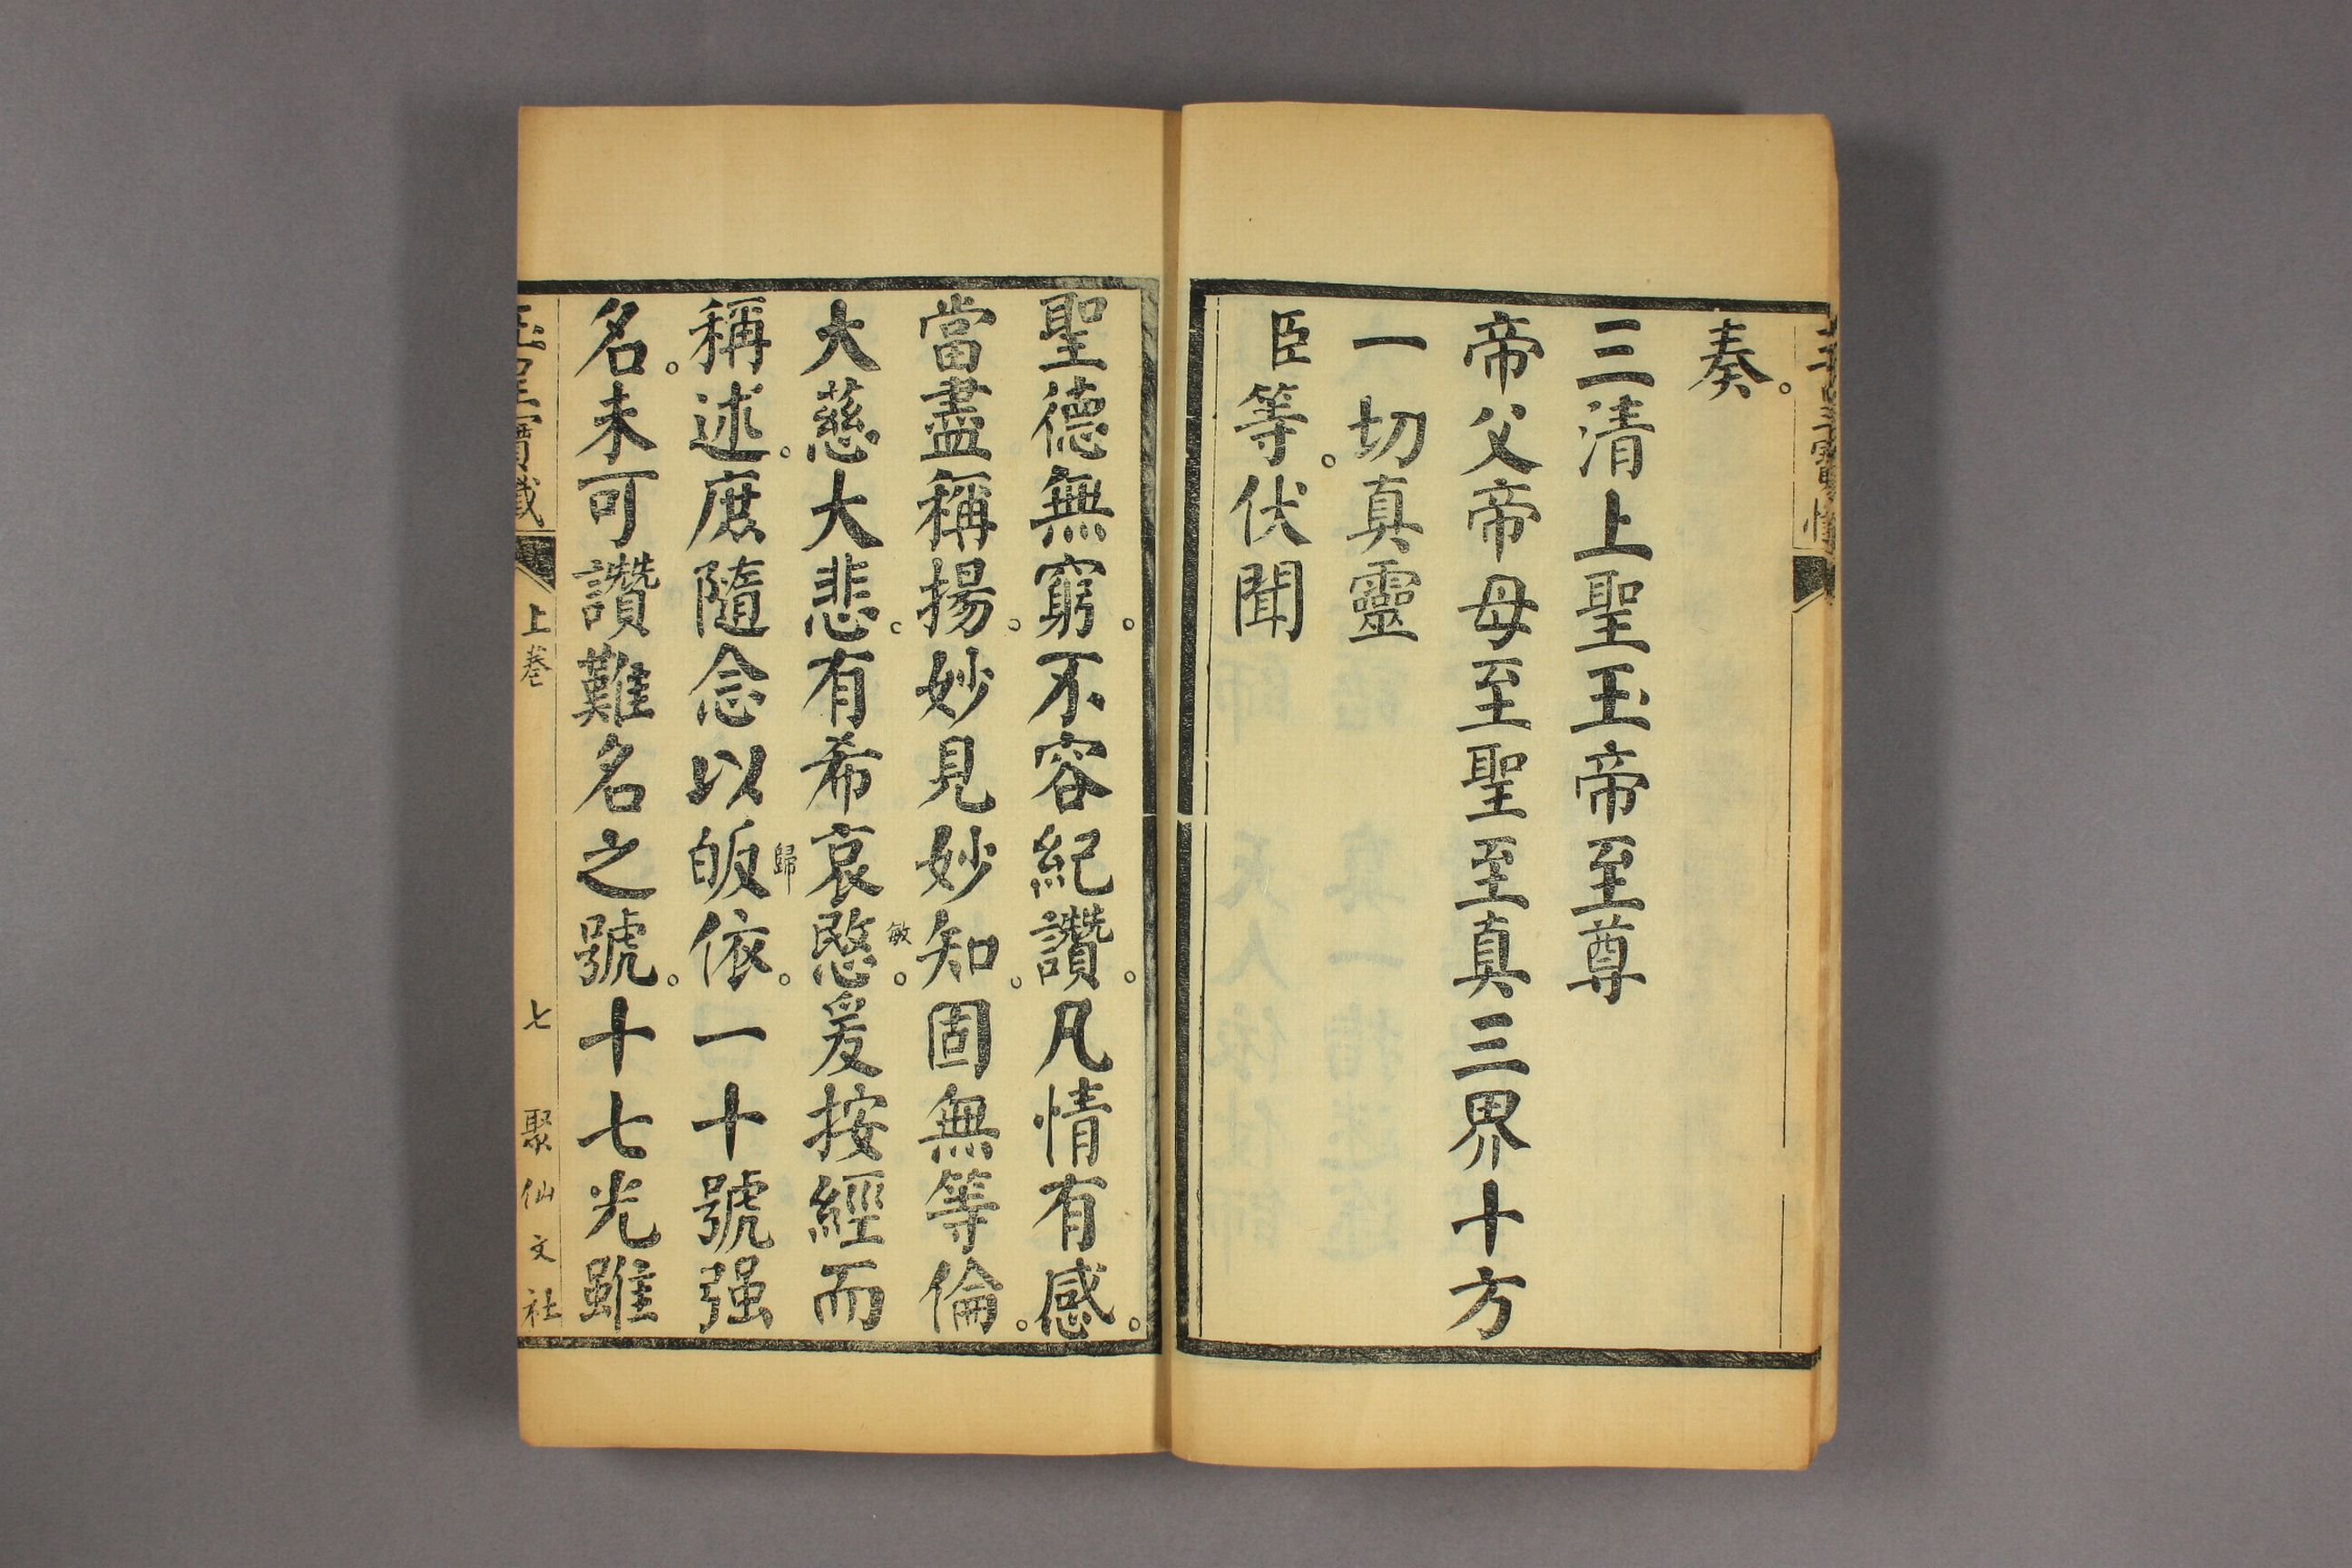 奏。
三清上聖玉帝至尊
帝父帝母至聖至真三界十方
一切真靈
臣等。伏聞
聖德無窮。不容紀讚。凡情有感。
當盡稱揚。妙見妙知。固無等倫。
大慈大悲。有希哀愍。爰按經而
敏
稱述。庶隨念以皈依。一十號强
歸
名。未可讚難名之號。十七光雖
上卷
七
聚仙文社